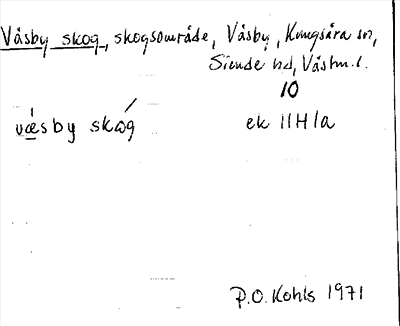 Väsby skog, skogsområde, Väsby, Kungsåra sn,
Siende hd, Västm.l.
10
væ̀sby skǿg ek 11H1a
P.O. Kohls 1971